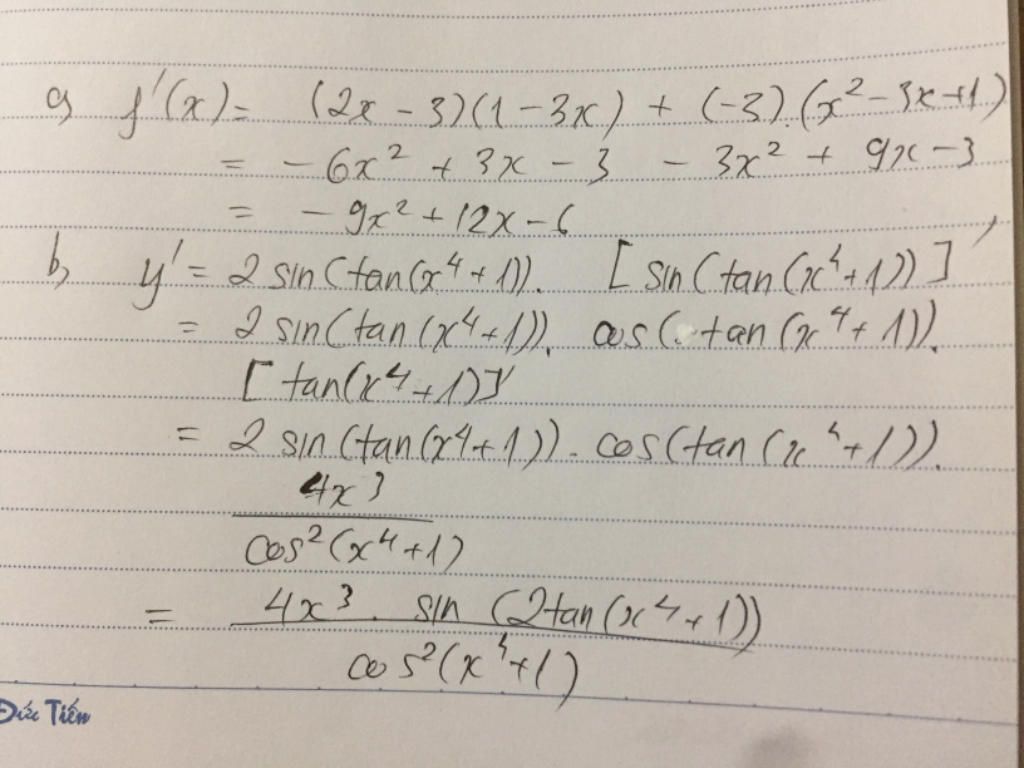 a, f'(x) = (2x - 3)(1 - 3x) + (-3).(x² - 3x + 1)
= - 6x² + 3x - 3 - 3x² + 9x - 3
= - 9x² + 12x - 6
b, y' = 2 sin(tan(x⁴ + 1)). [sin(tan(x⁴ + 1))]'
= 2 sin(tan(x⁴ + 1)). cos(tan(x⁴ + 1)).
[tan(x⁴ + 1)]'
= 2 sin(tan(x⁴ + 1)). cos(tan(x⁴ + 1)).
4x³
cos²(x⁴ + 1)
= 4x³. sin (2tan(x⁴ + 1))
cos²(x⁴ + 1)
Đức Tiến